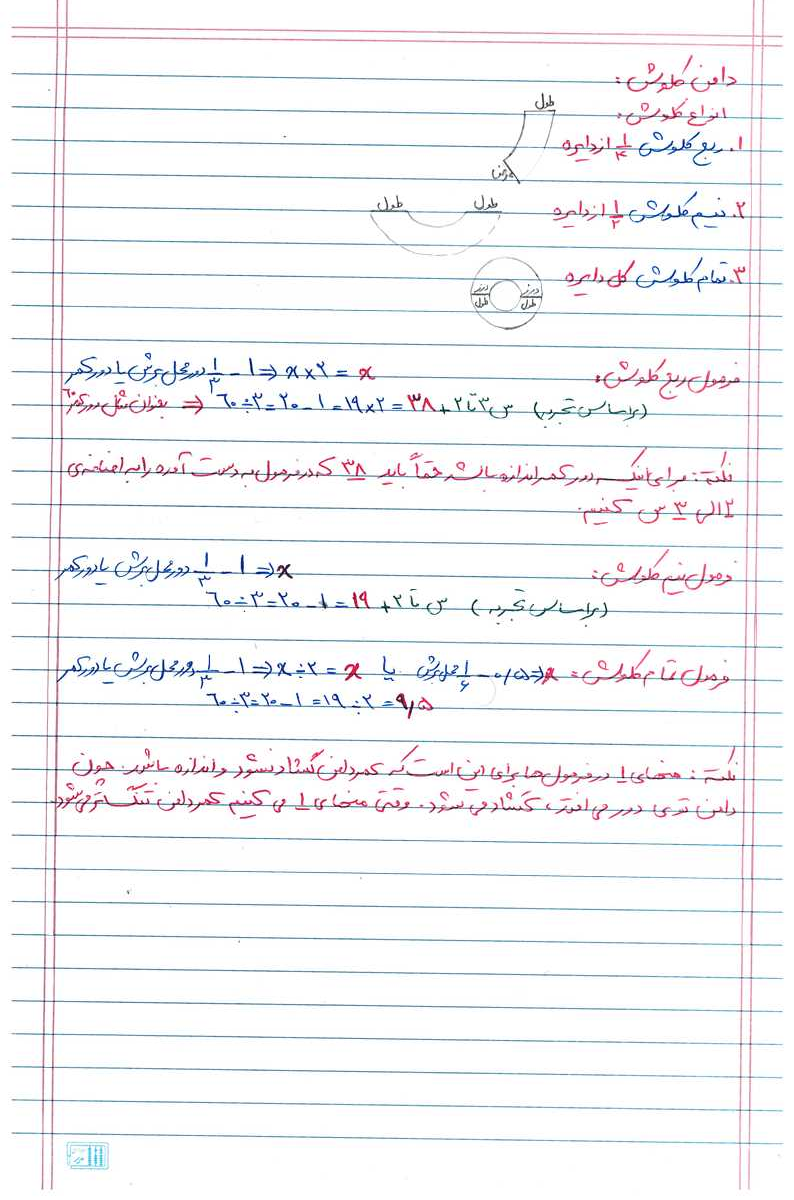 دامن کلوش:
انواع کلوش:
طول
۱. ربع کلوش ۱/۴ از دایره
درز
طول طول
۲. نیم کلوش ۱/۲ از دایره
۳. تمام کلوش کل دایره
درز طول درز طول
فرمول ربع کلوش:
x = x × ۲ ⇐ ۱ - ۱/۳ دور محل برش یا دور کمر
(براساس تجربه) س ۳ تا ۲ + ۳۸ = ۱۹×۲ = ۲۰-۱ = ۶۰÷۳ ⇐ بعنوان مثال دور کمر ۶۰
نکته: برای اینکه دور کمر اندازه باشد حتماً باید ۳۸ که در فرمول به دست آمده را به اضافه‌ی
۲ الی ۳ س کنیم.
فرمول نیم کلوش:
x ⇐ ۱ - ۱/۳ دور محل برش یا دور کمر
(براساس تجربه) س تا ۲ + ۱۹ = ۲۰-۱ = ۶۰÷۳
فرمول تمام کلوش: x ⇐ ۰/۵ - ۱/۶ محل برش یا x = x ÷ ۲ ⇐ ۱ - ۱/۳ دور محل برش یا دور کمر
۶۰÷۳=۲۰-۱=۱۹÷۲=۹/۵
نکته: منهای ۱ در فرمول ها برای این است که کمر دامن گشاد نشود و اندازه باشد. چون
دامن توی دور می افتد، گشاد می شود. وقتی منهای ۱ می کنیم کمر دامن تنگ تر می شود.